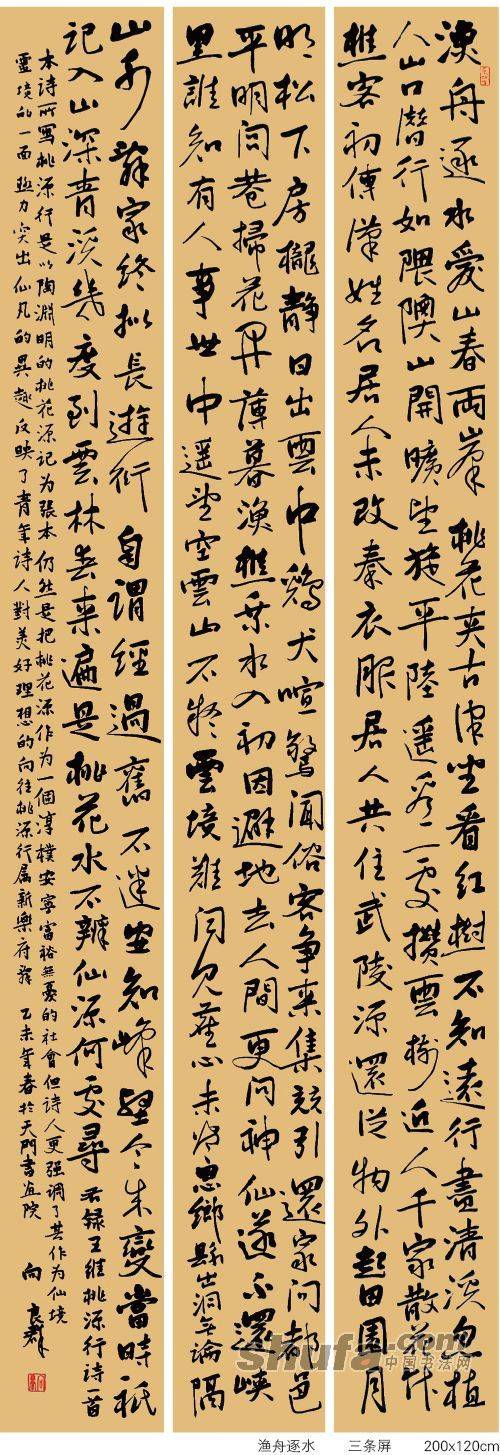 漁舟逐水愛山春兩峯桃花夾古津坐看紅樹不知遠行盡清溪忽植
人山口潛行如隈隩山開曠望旋平陸遥看一處攢雲樹近人千家散花竹
樵客初傳漢姓名居人未改秦衣服居人共住武陵源還從物外起田園月
明松下房櫳靜日出雲中鷄犬喧驚聞俗客争来集競引還家问都邑
平明闾巷掃花開薄暮漁樵乘水入初因避地去人間更问神仙遂不還峽
里誰知有人事世中遥望空雲山不疑靈境難闻見塵心未盡思鄉縣出洞無論隔
山水辭家終拟長遊衍自謂經過舊不迷安知峰壑今来變當時衹
記入山深青溪幾度到雲林春来遍是桃花水不辨仙源何處尋 右録王維桃源行詩一首
本诗所寫桃源行是以陶淵明的桃花源记为張本仍然是把桃花源作为一個淳樸安寧富裕無憂的社會但詩人更强調了其作为仙境
靈境的一面 力突出仙凡的異趣反映了青年诗人對美好理想的向往桃源行属新樂府辭 乙未年春於天門書画院 向良群
shufa.com 中国书法网
渔舟逐水 三条屏 200x120cm